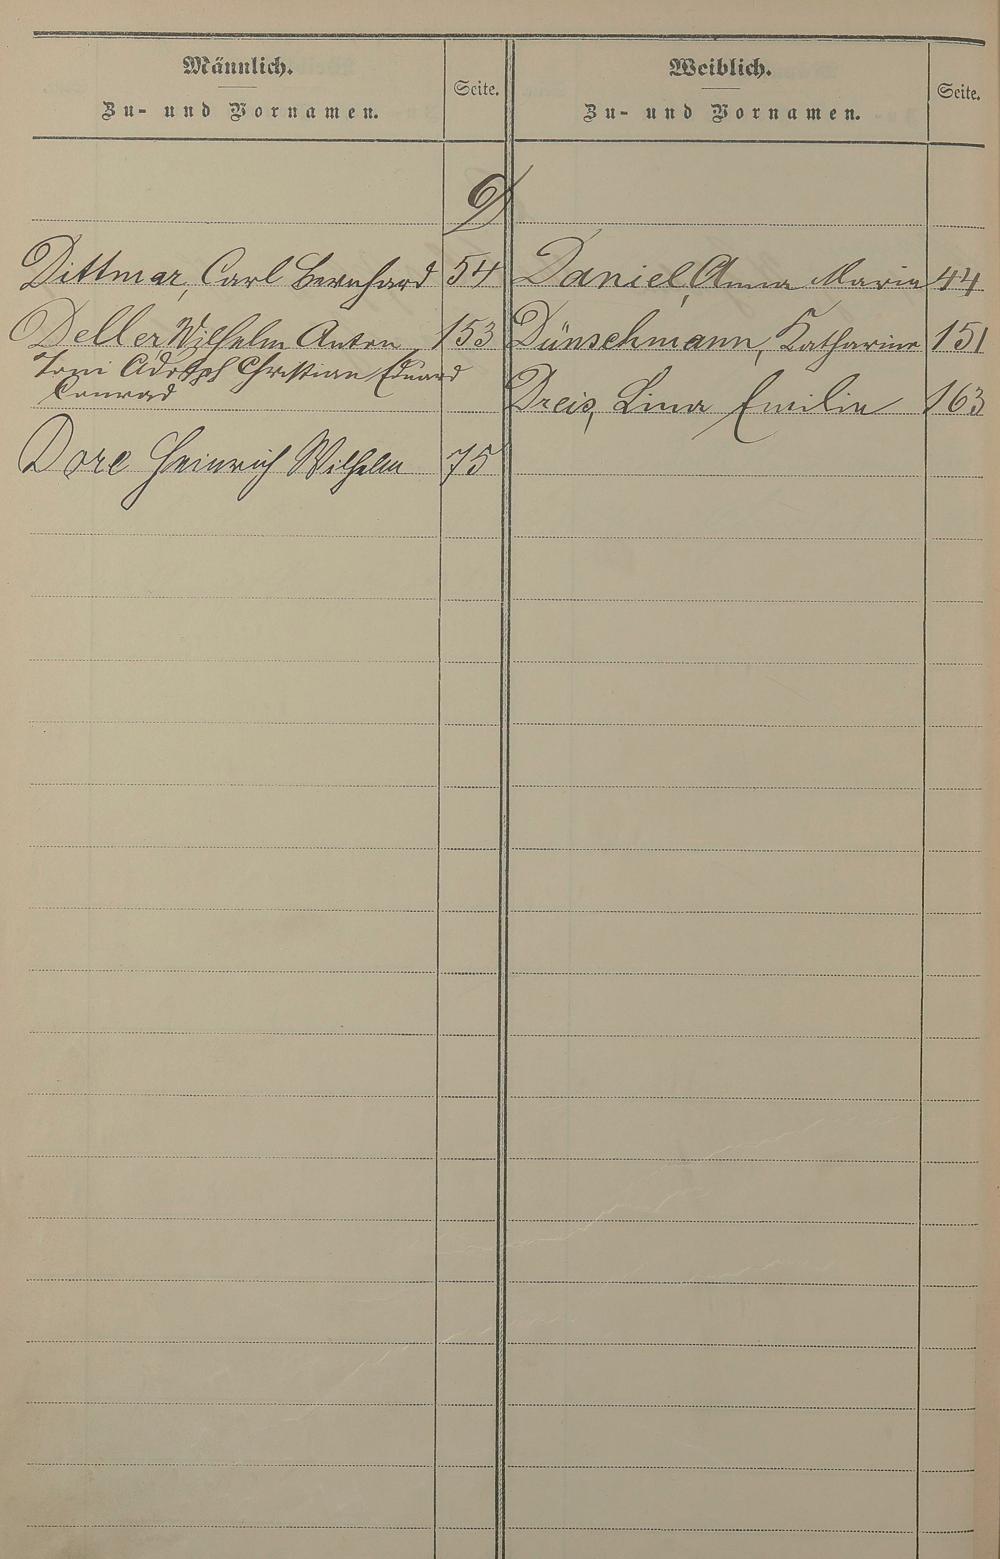 Männlich.
Zu- und Vornamen.
Seite.
Weiblich.
Zu- und Vornamen.
Seite.
D
Dittmar, Carl Bernhard 54
Daniel, Anna Maria 44
Deller Wilhelm Anton 153
Dünschmann, Katharine 151
Toni Adolph Christian Eduard
Conrad
Dreis, Lina Emilie 163
Dore Heinrich Wilhelm 75